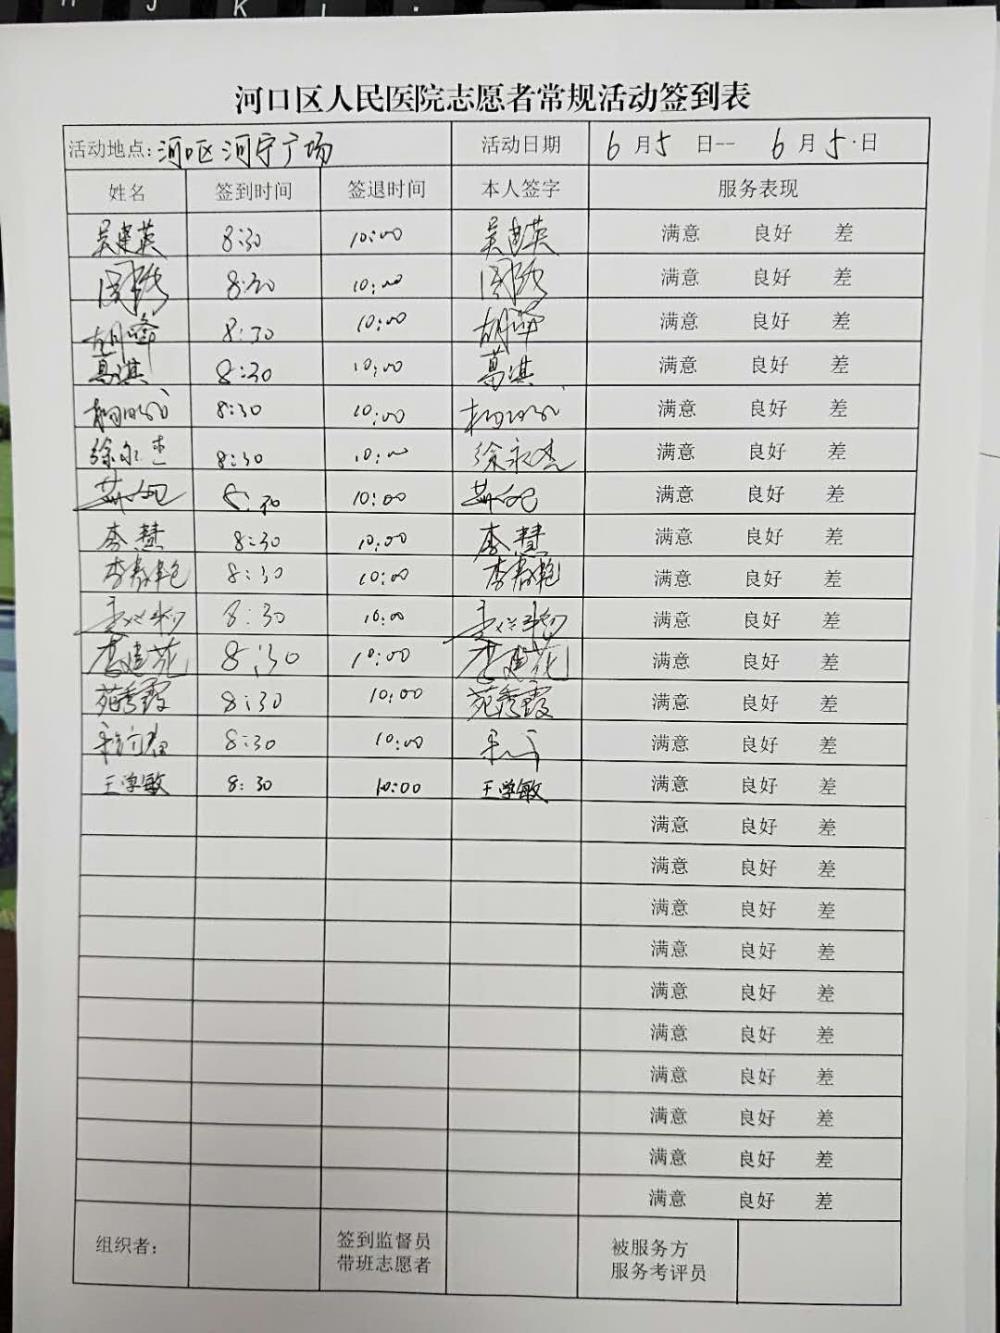 河口区人民医院志愿者常规活动签到表
活动地点: 河口区河宁广场 活动日期 6月5日--6月5日
姓名 签到时间 签退时间 本人签字 服务表现
吴建英 8:30 10:00 吴建英 满意 良好 差
8:30 10:00 满意 良好 差
胡峰 8:30 10:00 胡峰 满意 良好 差
葛淇 8:30 10:00 葛淇 满意 良好 差
8:30 10:00 满意 良好 差
徐永杰 8:30 10:00 徐永杰 满意 良好 差
8:30 10:00 满意 良好 差
李慧 8:30 10:00 李慧 满意 良好 差
李春艳 8:30 10:00 李春艳 满意 良好 差
8:30 10:00 满意 良好 差
李建花 8:30 10:00 李建花 满意 良好 差
苑秀霞 8:30 10:00 苑秀霞 满意 良好 差
8:30 10:00 满意 良好 差
王学敏 8:30 10:00 王学敏 满意 良好 差
满意 良好 差
满意 良好 差
满意 良好 差
满意 良好 差
满意 良好 差
满意 良好 差
满意 良好 差
满意 良好 差
满意 良好 差
满意 良好 差
组织者: 签到监督员 被服务方
带班志愿者 服务考评员